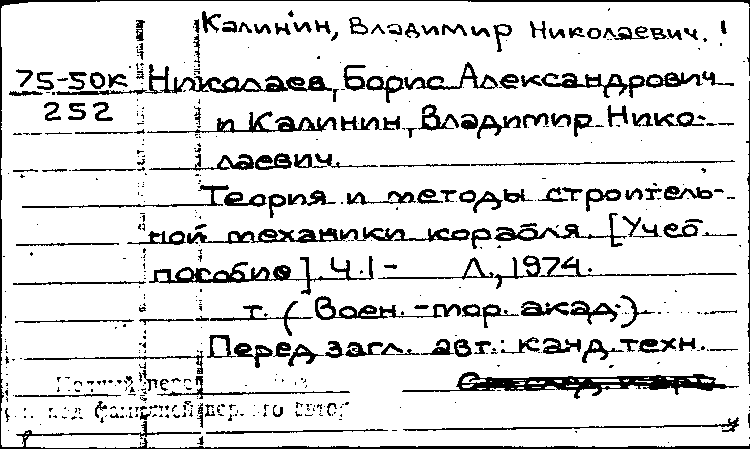 Калинин, Владимир Николаевич. !
75-50к Николаев, Борис Александрович
252 и Калинин, Владимир Нико-
лаевич.
Теория и методы строитель-
ной механики корабля. [Учеб.
пособие]. Ч.1- Л., 1974.
т. (Воен.-мор. акад.)
Перед загл. авт.: канд. техн.